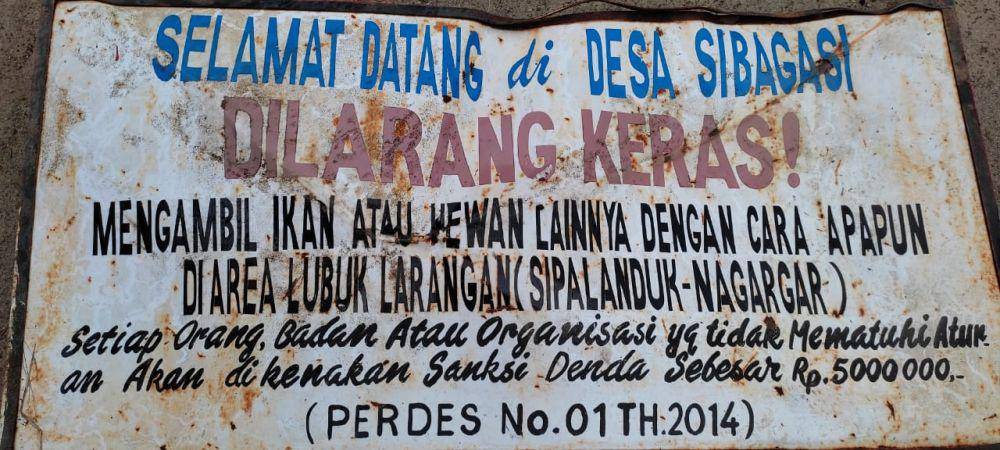 SELAMAT DATANG di DESA SIBAGASI
DILARANG KERAS!
MENGAMBIL IKAN ATAU HEWAN LAINNYA DENGAN CARA APAPUN
DI AREA LUBUK LARANGAN (SIPALANDUK-NAGARGAR)
Setiap Orang, Badan Atau Organisasi yg tidak Mematuhi Atur-
an Akan di kenakan Sanksi Denda Sebesar Rp. 5000 000,-
(PERDES No. 01 TH. 2014)